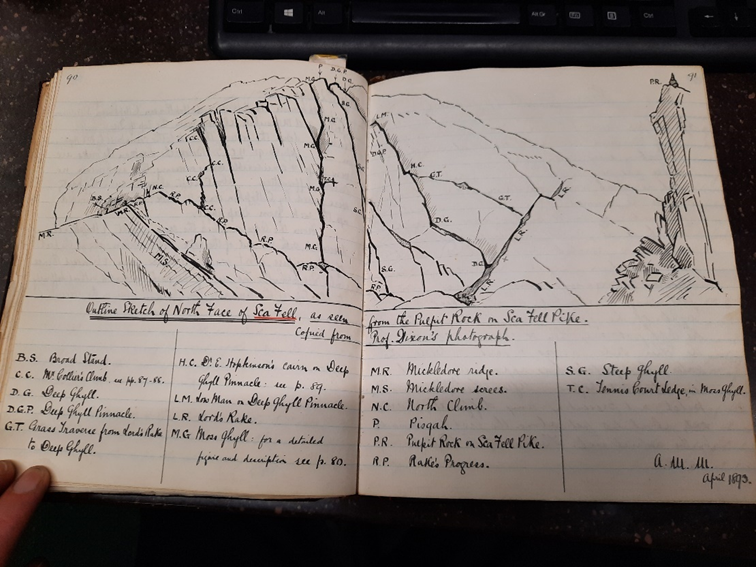 90
91
P. D.G.P.
M.G.
D.G.
P.R.
S.G.
L.M.
C.C.
M.G.
D.G.P.
H.C.
G.T.
C.C.
T.C.
M.G.
G.T.
L.R.
B.S.
N.C.
R.P.
D.G.
L.R.
M.R.
M.S.
R.P.
M.G.
R.P.
S.G.
D.G.
L.R.
R.P.
L.R.
Outline Sketch of North Face of Sea Fell, as seen from the Pulpit Rock on Sea Fell Pike.
Copied from Prof. Dixon's photograph.
B.S. Broad Stand.
C.C. Mr Collier's Climb. see pp. 87-88.
D.G. Deep Ghyll.
D.G.P. Deep Ghyll Pinnacle.
G.T. Grass Traverse from Lord's Rake
to Deep Ghyll.
H.C. Dr. E. Hopkinson's cairn on Deep
Ghyll Pinnacle: see p. 89.
L.M. Low Man on Deep Ghyll Pinnacle.
L.R. Lord's Rake.
M.G. Moss Ghyll: for a detailed
figure and description see p. 80.
M.R. Mickledore ridge.
M.S. Mickledore screes.
N.C. North Climb.
P. Pisgah.
P.R. Pulpit Rock on Sea Fell Pike.
R.P. Rake's Progress.
S.G. Steep Ghyll.
T.C. Tennis Court Ledge, in Moss Ghyll.
A.M.M.
April 1893.
Ctrl
Alt
Ctrl